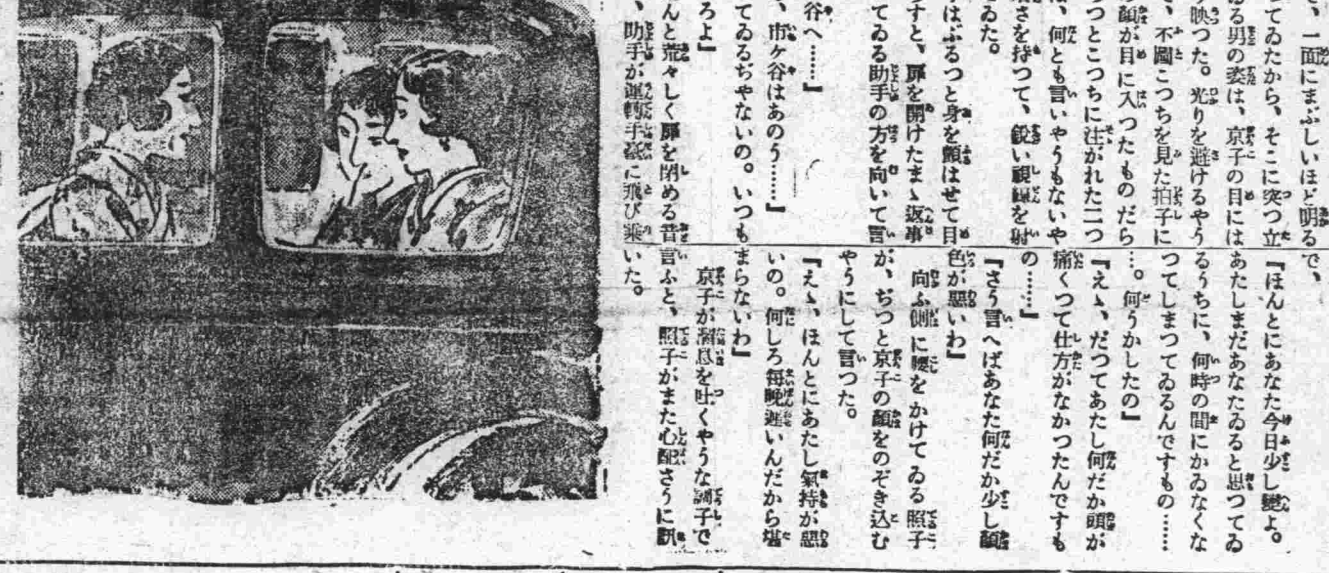 、一面にまぶしいほど明る
つてゐたから、そこに突つ立
ゐる男の姿は、京子の目には
映つた。光りを避けるやう
、不圖こつちを見た拍子に
の顔が目に入つたものだら
つとこつちに注がれた二つ
、何とも言いやうもないや
さを持つて、鋭い視線を射
ゐた。
はぶるつと身を顫はせて目
すと、扉を開けたまゝ返事
てゐる助手の方を向いて言
谷へ……』
、市ケ谷はあのう……』
てゐるぢやないの。いつも
ろよ』
んと荒々しく扉を閉める音
、助手が運轉手臺に飛び乘
で、
『ほんとにあなた今日少し變よ。
あたしまだあなたゐると思つてゐ
るうちに、何時の間にかゐなくな
つてしまつてゐるんですもの……
…。何うかしたの』
『えゝ、だつてあたし何だか頭が
痛くつて仕方がなかつたんですも
の……』
『さう言へばあなた何だか少し顔
色が惡いわ』
向ふ側に腰をかけてゐる照子
が、ぢつと京子の顔をのぞき込む
やうにして言つた。
『えゝ、ほんとにあたし氣持が惡
いの。何しろ每晩遲いんだから堪
まらないわ』
京子が溜息を吐くやうな調子で
言ふと、照子がまた心配さうに訊
いた。